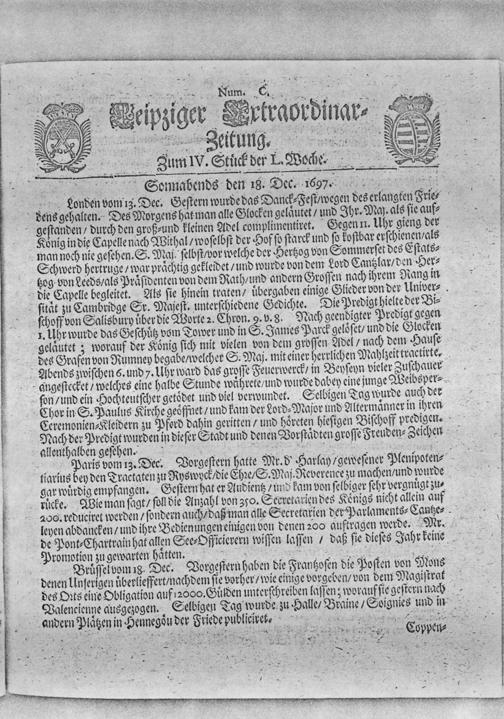 Num. C.
Leipziger Extraordinar-
Zeitung.
Zum IV. Stück der L. Woche.
Sonnabends den 18. Dec. 1697.
Londen vom 13. Dec. Gestern wurde das Danck-Fest/wegen des erlangten Frie-
dens gehalten. Des Morgens hat man alle Glocken geläutet / und Ihr. Maj. als sie auf-
gestanden / durch den groß-und kleinen Adel complimentiret. Gegen 11. Uhr gieng der
König in die Capelle nach Withal/ woselbst der Hof so starck und so kostbar erschienen/als
man noch nie gesehen. S. Maj. selbst/vor welche der Hertzog von Sommerset des Estats-
Schwerd hertruge/ war prächtig gekleidet / und wurde von dem Lord Cantzlar/ den Her-
tzog von Leeds/als Präsidenten von dem Rath/und andern Grossen nach ihrem Rang in
die Capelle begleitet. Als sie hinein traten / übergaben einige Glieder von der Univer-
sität zu Cambridge Sr. Majest. unterschiedene Gedichte. Die Predigt hielte der Bi-
schoff von Salisbury über die Worte 2. Chron. 9. v. 8. Nach geendigter Predigt gegen
1. Uhr wurde das Geschütz vom Tower und in S. James Parck gelöset/ und die Glocken
geläutet ; worauf der König sich mit vielen von dem grossen Adel / nach dem Hause
des Grafen von Rumney begabe/welcher S. Maj. mit einer herrlichen Mahlzeit tractirte.
Abends zwischen 6. und 7. Uhr ward das grosse Feuerwerck / in Beyseyn vieler Zuschauer
angestecket / welches eine halbe Stunde währete/ und wurde dabey eine junge Weibsper-
son/ und ein Hochteutscher getödet und viel verwundet. Selbigen Tag wurde auch der
Chor in S. Paulus Kirche geöffnet / und kam der Lord-Major und Altermänner in ihren
Ceremonien-Kleidern zu Pferd dahin geritten / und höreten hiesigen Bischoff predigen.
Nach der Predigt wurden in dieser Stadt und denen Vorstädten grosse Freuden-Zeichen
allenthalben gesehen.
Paris vom 13. Dec. Vorgestern hatte Mr. d' Harlay / gewesener Plenipoten-
tiarius bey den Tractaten zu Ryswyck/ die Ehre/ S. Maj. Reverence zu machen/und wurde
gar würdig empfangen. Gestern hat er Audientz / und kam von selbiger sehr vergnügt zu-
rücke. Wie man sagt / soll die Anzahl von 350. Secretarien des Königs nicht allein auf
200. reduciret werden / sondern auch/ daß man alle Secretarien der Parlaments-Cantze-
leyen abdancken / und ihre Bedienungen einigen von denen 200 auftragen werde. Mr.
de Pont-Chartrain hat allen See-Officierern wissen lassen / daß sie dieses Jahr keine
Promotion zu gewarten hätten.
Brüssel vom 18. Dec. Vorgestern haben die Frantzosen die Posten von Mons
denen Unserigen überlieffert/nachdem sie vorher/ wie einige vorgeben / von dem Magistrat
des Orts eine Obligation auf 12000. Gülden unterschreiben lassen ; worauf sie gestern nach
Valencienne ausgezogen. Selbigen Tag wurde zu Halle / Braine / Soignies und in
andern Plätzen in Hennegöu der Friede publiciret.
Coppen-